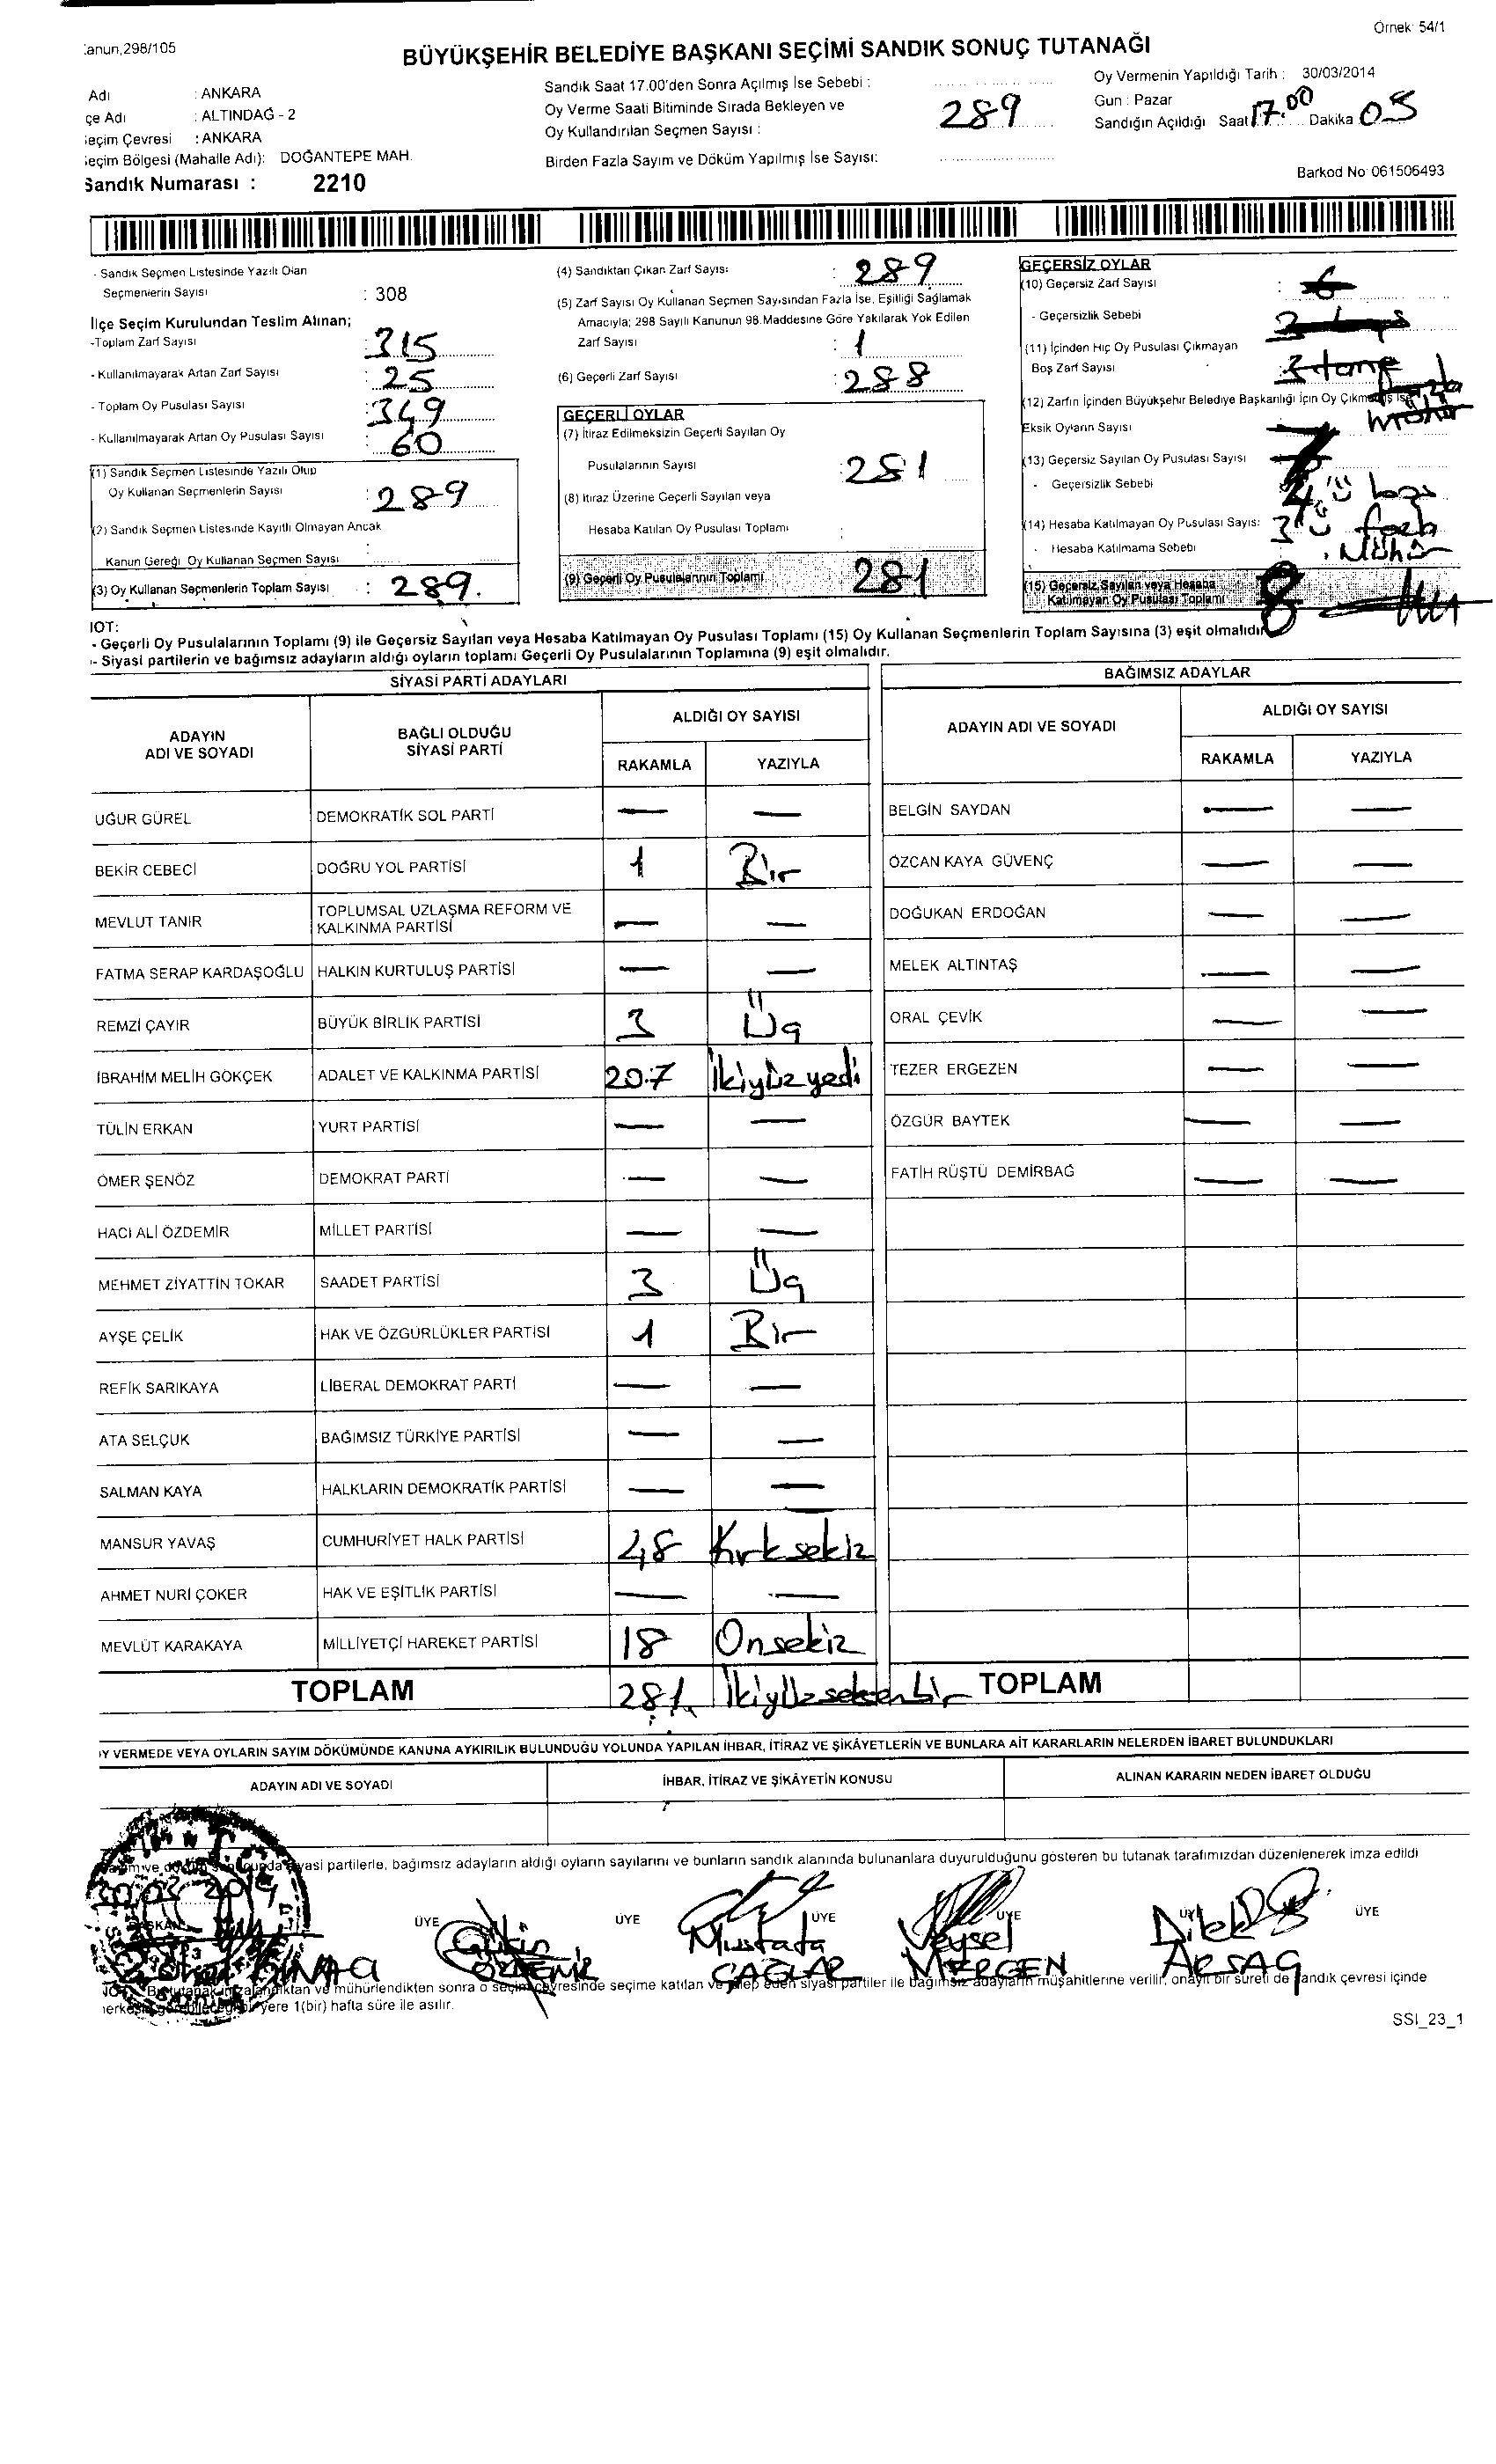 Örnek: 54/1
:anun,298/105
BÜYÜKŞEHİR BELEDİYE BAŞKANI SEÇİMİ SANDIK SONUÇ TUTANAĞI
Adı : ANKARA
çe Adı : ALTINDAĞ - 2
eçim Çevresi : ANKARA
eçim Bölgesi (Mahalle Adı): DOĞANTEPE MAH.
Sandık Numarası : 2210
Sandık Saat 17.00'den Sonra Açılmış İse Sebebi :
Oy Verme Saati Bitiminde Sırada Bekleyen ve
Oy Kullandırılan Seçmen Sayısı : 289
Birden Fazla Sayım ve Döküm Yapılmış İse Sayısı:
Oy Vermenin Yapıldığı Tarih : 30/03/2014
Gün : Pazar
Sandığın Açıldığı Saat 17.00 Dakika 05
Barkod No: 061506493
- Sandık Seçmen Listesinde Yazılı Olan
Seçmenlerin Sayısı : 308
İlçe Seçim Kurulundan Teslim Alınan;
-Toplam Zarf Sayısı : 315
- Kullanılmayarak Artan Zarf Sayısı : 25
- Toplam Oy Pusulası Sayısı : 349
- Kullanılmayarak Artan Oy Pusulası Sayısı : 60
(1) Sandık Seçmen Listesinde Yazılı Olup
Oy Kullanan Seçmenlerin Sayısı : 289
(2) Sandık Seçmen Listesinde Kayıtlı Olmayan Ancak
Kanun Gereği Oy Kullanan Seçmen Sayısı :
(3) Oy Kullanan Seçmenlerin Toplam Sayısı : 289.
(4) Sandıktan Çıkan Zarf Sayısı : 289
(5) Zarf Sayısı Oy Kullanan Seçmen Sayısından Fazla İse, Eşitliği Sağlamak
Amacıyla; 298 Sayılı Kanunun 98.Maddesine Göre Yakılarak Yok Edilen
Zarf Sayısı : 1
(6) Geçerli Zarf Sayısı : 288
GEÇERLİ OYLAR
(7) İtiraz Edilmeksizin Geçerli Sayılan Oy
Pusulalarının Sayısı : 281
(8) İtiraz Üzerine Geçerli Sayılan veya
Hesaba Katılan Oy Pusulası Toplamı :
(9) Geçerli Oy Pusulalarının Toplamı 281
GEÇERSİZ OYLAR
(10) Geçersiz Zarf Sayısı : 6
- Geçersizlik Sebebi
(11) İçinden Hiç Oy Pusulası Çıkmayan
Boş Zarf Sayısı
(12) Zarfın İçinden Büyükşehir Belediye Başkanlığı İçin Oy Çıkmamış İse
Eksik Oyların Sayısı
(13) Geçersiz Sayılan Oy Pusulası Sayısı
- Geçersizlik Sebebi
(14) Hesaba Katılmayan Oy Pusulası Sayıs:
- Hesaba Katılmama Sebebi
(15) Geçersiz Sayılan veya Hesaba
Katılmayan Oy Pusulası Toplamı 8
IOT:
- Geçerli Oy Pusulalarının Toplamı (9) ile Geçersiz Sayılan veya Hesaba Katılmayan Oy Pusulası Toplamı (15) Oy Kullanan Seçmenlerin Toplam Sayısına (3) eşit olmalıdır
- Siyasi partilerin ve bağımsız adayların aldığı oyların toplamı Geçerli Oy Pusulalarının Toplamına (9) eşit olmalıdır.
SİYASİ PARTİ ADAYLARI
ADAYIN ADI VE SOYADI BAĞLI OLDUĞU SİYASİ PARTİ ALDIĞI OY SAYISI
RAKAMLA YAZIYLA
UĞUR GÜREL DEMOKRATİK SOL PARTİ — —
BEKİR CEBECİ DOĞRU YOL PARTİSİ 1 Bir
MEVLUT TANIR TOPLUMSAL UZLAŞMA REFORM VE KALKINMA PARTİSİ — —
FATMA SERAP KARDAŞOĞLU HALKIN KURTULUŞ PARTİSİ — —
REMZİ ÇAYIR BÜYÜK BİRLİK PARTİSİ 3 Üç
İBRAHİM MELİH GÖKÇEK ADALET VE KALKINMA PARTİSİ 207 İkiyüzyedi
TÜLİN ERKAN YURT PARTİSİ — —
ÖMER ŞENÖZ DEMOKRAT PARTİ — —
HACI ALİ ÖZDEMİR MİLLET PARTİSİ — —
MEHMET ZİYATTİN TOKAR SAADET PARTİSİ 3 Üç
AYŞE ÇELİK HAK VE ÖZGÜRLÜKLER PARTİSİ 1 Bir
REFİK SARIKAYA LİBERAL DEMOKRAT PARTİ — —
ATA SELÇUK BAĞIMSIZ TÜRKİYE PARTİSİ — —
SALMAN KAYA HALKLARIN DEMOKRATİK PARTİSİ — —
MANSUR YAVAŞ CUMHURİYET HALK PARTİSİ 48 Kırksekiz
AHMET NURİ ÇOKER HAK VE EŞİTLİK PARTİSİ — —
MEVLÜT KARAKAYA MİLLİYETÇİ HAREKET PARTİSİ 18 Onsekiz
TOPLAM 281 İkiyüzseksenbir
BAĞIMSIZ ADAYLAR
ADAYIN ADI VE SOYADI ALDIĞI OY SAYISI
RAKAMLA YAZIYLA
BELGİN SAYDAN — —
ÖZCAN KAYA GÜVENÇ — —
DOĞUKAN ERDOĞAN — —
MELEK ALTINTAŞ — —
ORAL ÇEVİK — —
TEZER ERGEZEN — —
ÖZGÜR BAYTEK — —
FATİH RÜŞTÜ DEMİRBAĞ — —
TOPLAM
Y VERMEDE VEYA OYLARIN SAYIM DÖKÜMÜNDE KANUNA AYKIRILIK BULUNDUĞU YOLUNDA YAPILAN İHBAR, İTİRAZ VE ŞİKÂYETLERİN VE BUNLARA AİT KARARLARIN NELERDEN İBARET BULUNDUKLARI
ADAYIN ADI VE SOYADI İHBAR, İTİRAZ VE ŞİKÂYETİN KONUSU ALINAN KARARIN NEDEN İBARET OLDUĞU
siyasi partilerle, bağımsız adayların aldığı oyların sayılarını ve bunların sandık alanında bulunanlara duyurulduğunu gösteren bu tutanak tarafımızdan düzenlenerek imza edildi
30.03.2014
BAŞKAN ÜYE ÜYE ÜYE ÜYE ÜYE ÜYE
Mustafa ÇAĞLAR
Veysel MERGEN
Dilek
Bu tutanak imzalandıktan ve mühürlendikten sonra o seçim çevresinde seçime katılan ve talep eden siyasi partiler ile bağımsız adayların müşahitlerine verilir, onaylı bir sureti de sandık çevresi içinde
herkesin görebileceği bir yere 1(bir) hafta süre ile asılır.
SSI_23_1